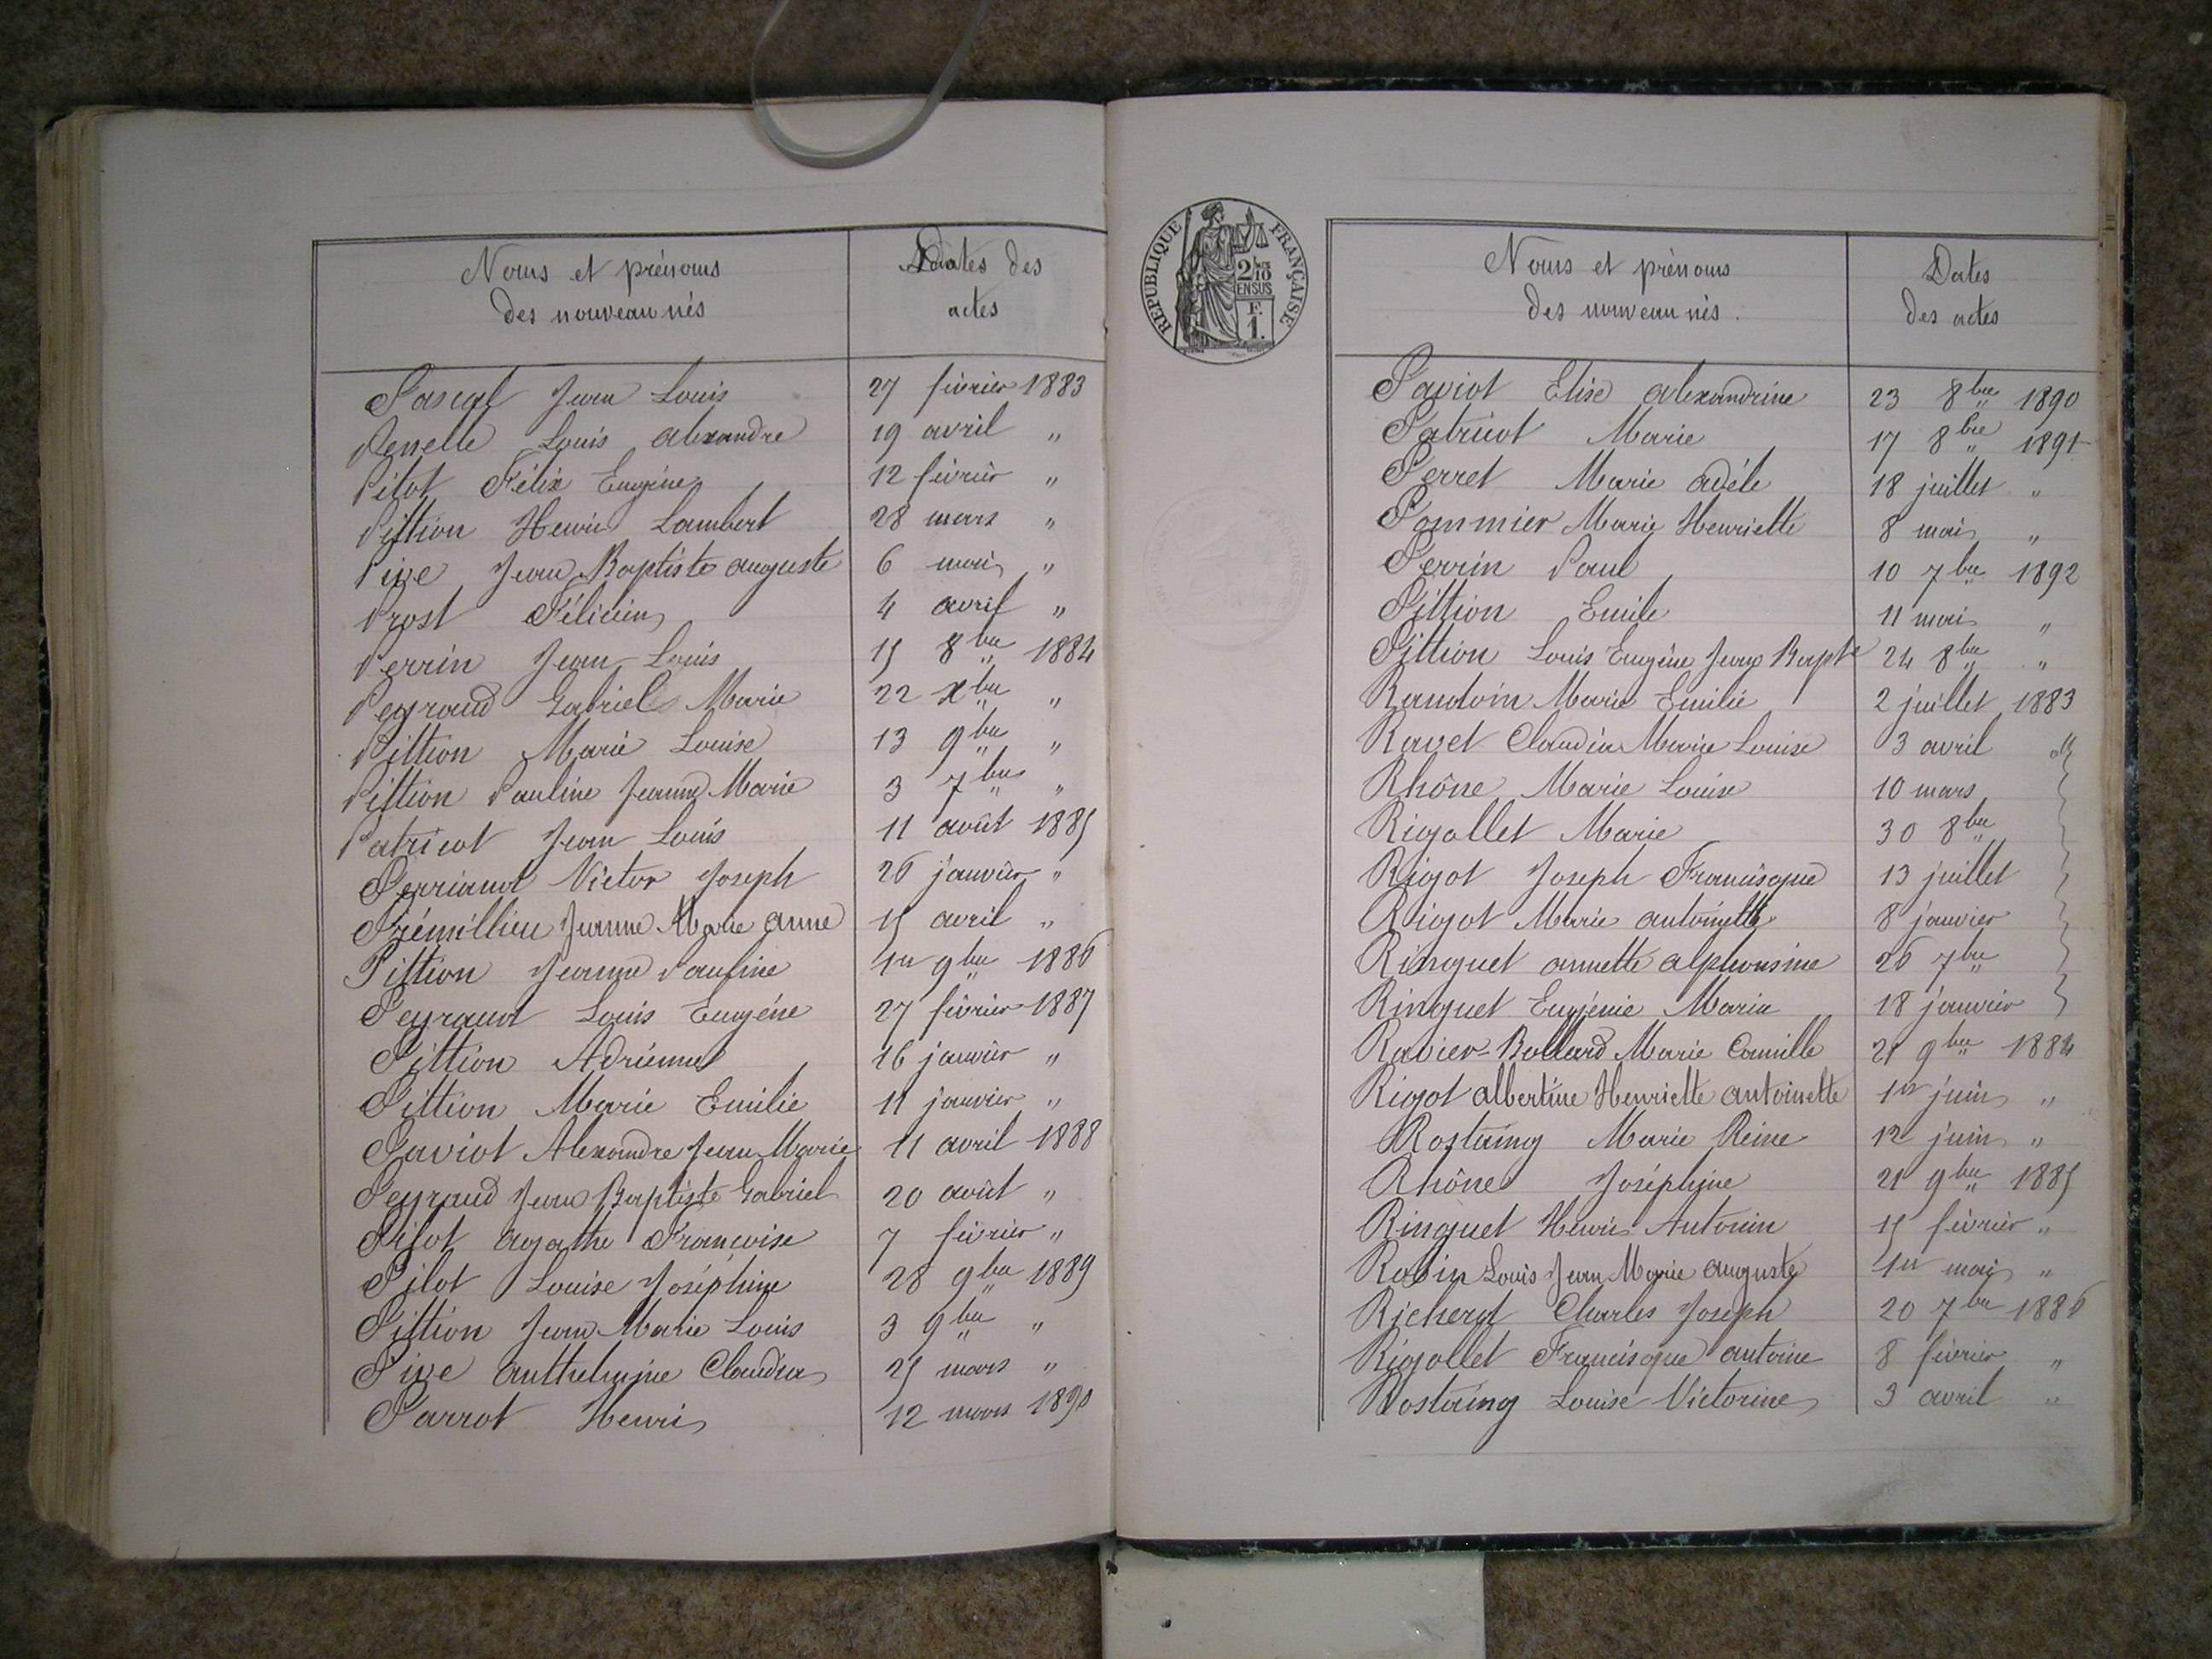 Noms et prénoms
des nouveau nés
Dates des
actes
Pascal Jean Louis 27 février 1883
Penelle Louis alexandre 19 avril "
Pilot Félix Eugène 12 février "
Pittion Henri Lambert 28 mars "
Pive Jean Baptiste auguste 6 mai "
Prost Félicien 4 avril "
Perrin Jean Louis 15 8bre 1884
Peyraud Gabriel Marie 22 xbre "
Pittion Marie Louise 13 9bre "
Pittion Pauline Jeanne Marie 3 7bre "
Patricot Jean Louis 11 août 1885
Perriand Victor Joseph 26 janvier "
Prémillieu Jeanne Marie anne 15 avril "
Pittion Jeanne Pauline 1er 9bre 1886
Peyraud Louis Eugène 27 février 1887
Pittion Adrienne 16 janvier "
Pittion Marie Emilie 11 janvier "
Paviot Alexandre Jean Marie 11 avril 1888
Peyraud Jean Baptiste Gabriel 20 août "
Pilot agathe Françoise 7 février "
Pilot Louise Joséphine 28 9bre 1889
Pittion Jean Marie Louis 3 9bre "
Pive anthelmine Claudia 25 mars "
Parrot Henri 12 mars 1890
REPUBLIQUE FRANÇAISE
2/10
EN SUS
F.
1.
Noms et prénoms
des nouveau nés.
Dates
des actes
Paviot Elise alexandrine 23 8bre 1890
Patricot Marie 17 8bre 1891
Perret Marie adèle 18 juillet "
Pommier Marie Henriette 8 mai "
Perrin Paul 10 7bre 1892
Pittion Emile 11 mai "
Pittion Louis Eugène Jean Bapte 24 8bre "
Randoin Marie Emilie 2 juillet 1883
Ravet Claudia Marie Louise 3 avril
Rhône Marie Louise 10 mars
Rigollet Marie 30 8bre
Rigot Joseph Francisque 13 juillet
Rigot Marie antoinette 8 janvier
Ringuet annette alphonsine 26 7bre
Ringuet Eugénie Maria 18 janvier
Ravier-Bollard Marie Camille 21 9bre 1884
Rigot albertine Henriette antoinette 1er juin "
Rostaing Marie Reine 12 juin "
Rhône Joséphine 21 9bre 1885
Ringuet Henri Antonin 15 février "
Robin Louis Jean Marie auguste 1er mai "
Richerd Charles Joseph 20 7bre 1886
Rigollet Francisque antoine 8 février "
Rostaing Louise Victorine 3 avril "